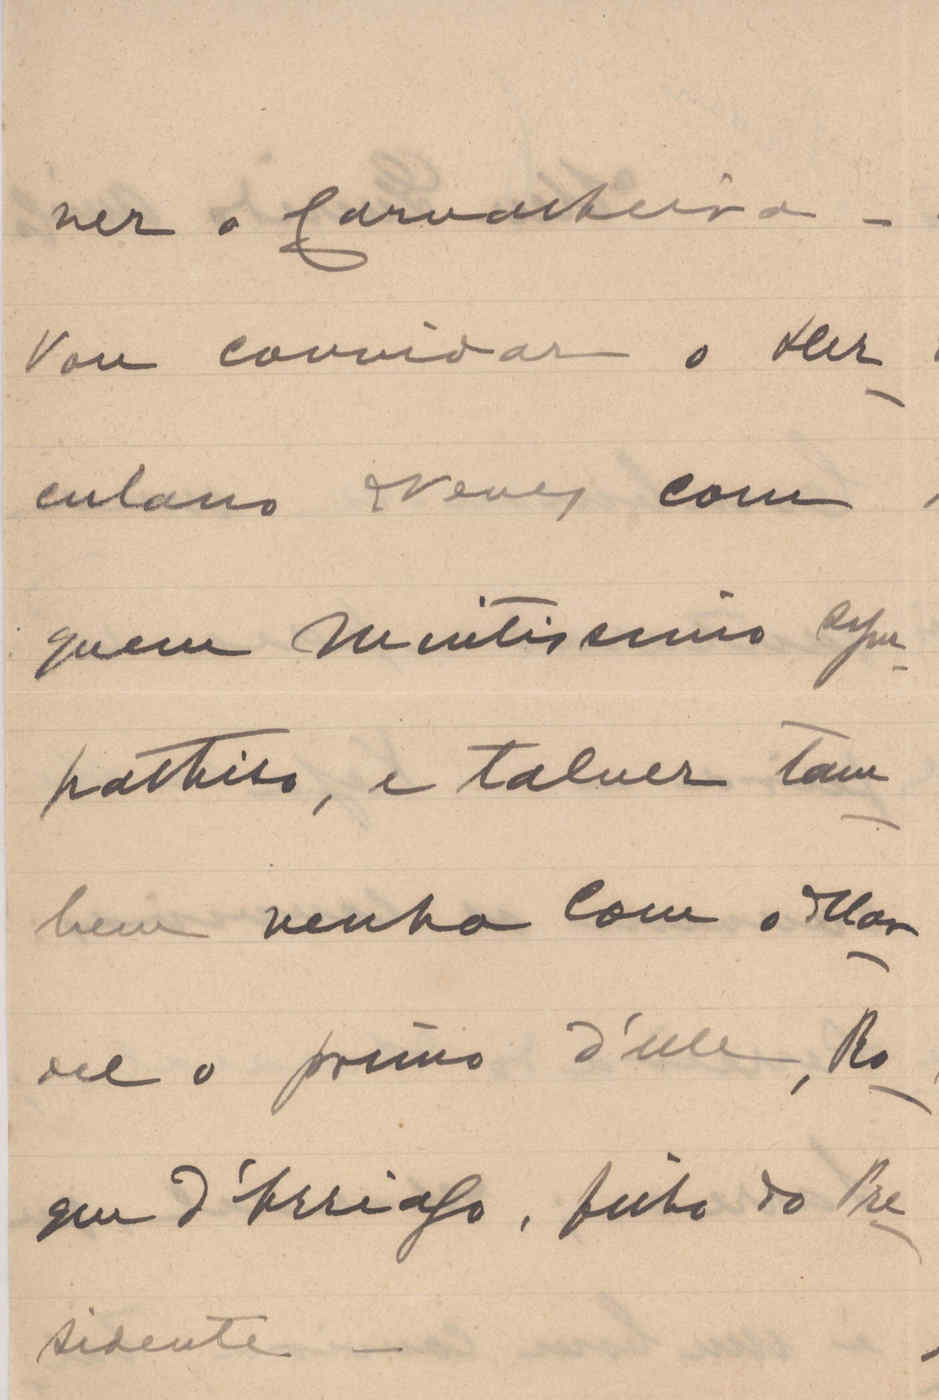 ver o Carvalheira –
Vou convidar o Her-
culano Neves com
quem muitissimo sym-
pathiso, e talvez tam-
bem venha com o Ma-
nel o primo d'elle, Ro-
que d'Arriaga, filho do Pre-
sidente –